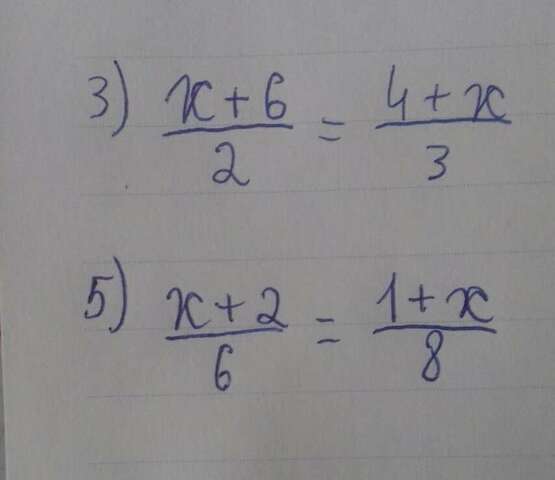 3) (x+6)/2 = (4+x)/3
5) (x+2)/6 = (1+x)/8